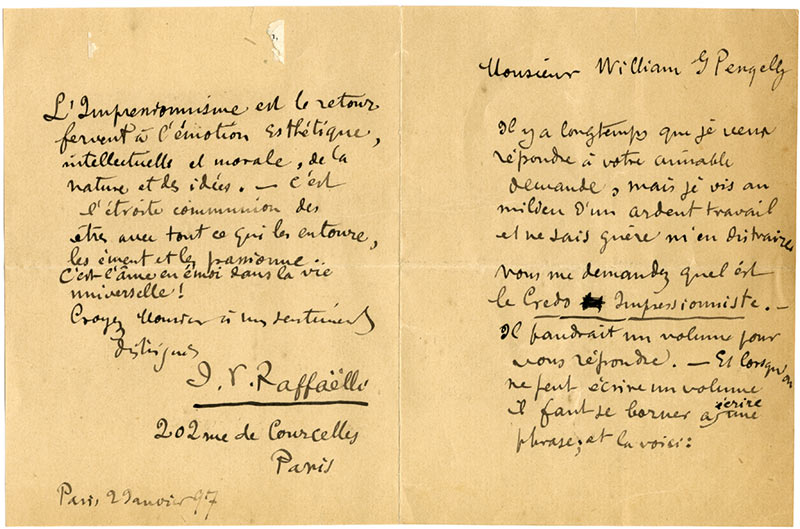 Monsieur William G Pengelly
Il y a longtemps que je veux
répondre à votre aimable
demande, mais je vis au
milieu d'un ardent travail
et ne sais guère m'en distraire
vous me demandez quel est
le Credo Impressionniste. —
Il faudrait un volume pour
vous répondre. — Et lorsqu'on
ne peut écrire un volume
il faut se borner à écrire une
phrase; et la voici:
L'Impressionnisme est le retour
fervent à l'émotion Esthétique,
intellectuelle et morale, de la
nature et des idées. — C'est
l'étroite communion des
etres avec tout ce qui les entoure,
les ément et les passionne.
C'est l'âme en émoi dans la vie
universelle!
Croyez Monsieur à mes sentiments
distingués
J. F. Raffaëlli
202 rue de Courcelles
Paris
Paris 2 Janvier 97